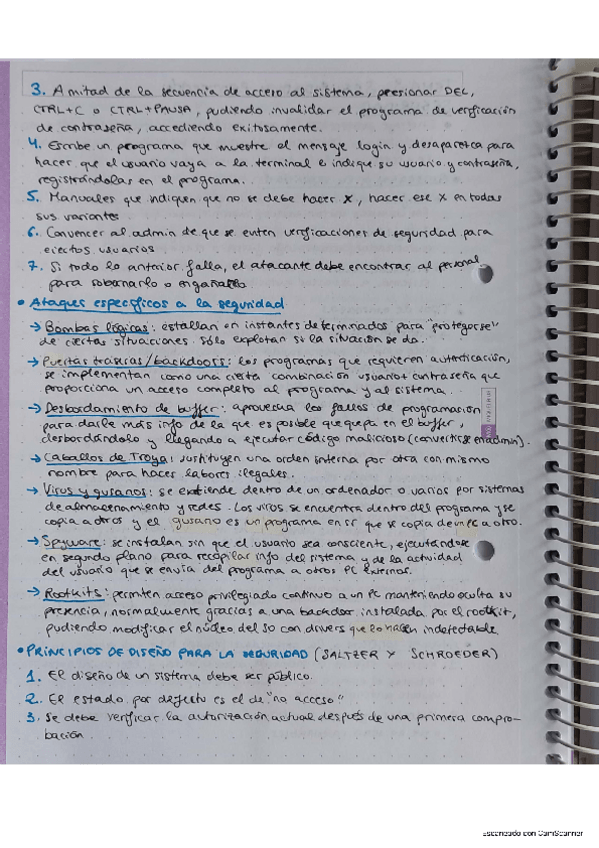 3. A mitad de la secuencia de acceso al sistema, presionar DEL,
CTRL+C o CTRL+PAUSA, pudiendo invalidar el programa de verificación
de contraseña, accediendo exitosamente.
4. Escribe un programa que muestre el mensaje login y desaparezca para
hacer que el usuario vaya a la terminal e indique su usuario y contraseña,
registrándolas en el programa.
5. Manuales que indiquen que no se debe hacer X, hacer ese X en todas
sus variantes
6. Convencer al admin de que se eviten verificaciones de seguridad para
ciertos usuarios
7. Si todo lo anterior falla, el atacante debe encontrar al personal
para sobornarlo o engañarlo
• Ataques específicos a la seguridad
→ Bombas lógicas: estallan en instantes determinados para "protegerse"
de ciertas situaciones. Sólo explotan si la situación se da.
→ Puertas traseras/backdoors: los programas que requieren autenticación,
se implementan como una cierta combinación usuario+contraseña que
proporciona un acceso completo al programa y al sistema.
→ Desbordamiento de buffer: aprovecha los fallos de programación
para darle más info de la que es posible que quepa en el buffer,
desbordándolo y llegando a ejecutar código malicioso (convertirse en admin).
→ Caballos de Troya: sustituyen una orden interna por otra con mismo
nombre para hacer labores ilegales.
→ Virus y gusanos: se extiende dentro de un ordenador o varios por sistemas
de almacenamiento y redes. Los virus se encuentra dentro del programa y se
copia a otros y el gusano es un programa en sí que se copia de un PC a otro.
→ Spyware: se instalan sin que el usuario sea consciente, ejecutándose
en segundo plano para recopilar info del sistema y de la actividad
del usuario que se envía del programa a otros PC externos.
→ Rootkits: permiten acceso privilegiado continuo a un PC manteniendo oculta su
presencia, normalmente gracias a una backdoor instalada por el rootkit,
pudiendo modificar el núcleo del SO con drivers que lo hacen indetectable
• PRINCIPIOS DE DISEÑO PARA LA SEGURIDAD (SALTZER Y SCHROEDER)
1. El diseño de un sistema debe ser público.
2. El estado por defecto es el de "no acceso"
3. Se debe verificar la autorización actual después de una primera compro-
bación
Escaneado con CamScanner